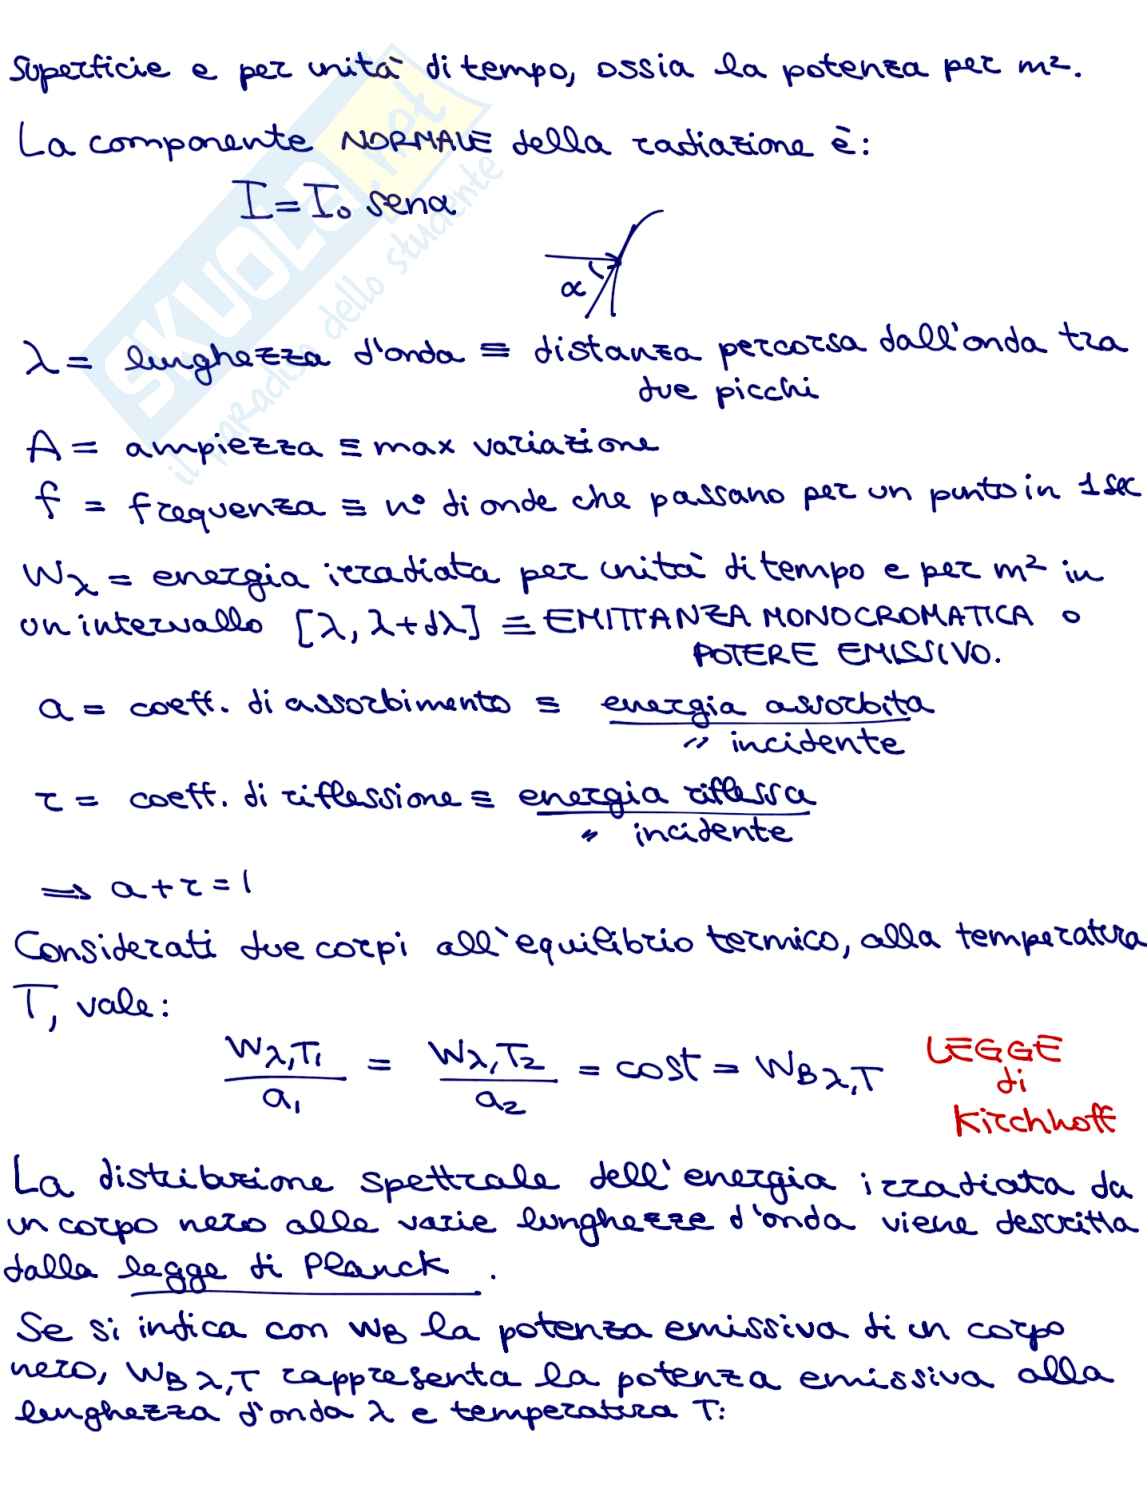 superficie e per unità di tempo, ossia la potenza per m².
La componente NORMALE della radiazione è:
I = I₀ senα
α
λ = lunghezza d'onda ≡ distanza percorsa dall'onda tra
due picchi
A = ampiezza ≡ max variazione
f = frequenza ≡ n° di onde che passano per un punto in 1 sec
Wλ = energia irradiata per unità di tempo e per m² in
un intervallo [λ, λ+dλ] ≡ EMITTANZA MONOCROMATICA o
POTERE EMISSIVO.
a = coeff. di assorbimento ≡ energia assorbita
" incidente
r = coeff. di riflessione ≡ energia riflessa
" incidente
⇒ a + r = 1
Considerati due corpi all'equilibrio termico, alla temperatura
T, vale:
Wλ,T₁ / a₁ = Wλ,T₂ / a₂ = cost = WBλ,T LEGGE
di
Kirchhoff
La distribuzione spettrale dell'energia irradiata da
un corpo nero alle varie lunghezze d'onda viene descritta
dalla legge di Planck.
Se si indica con WB la potenza emissiva di un corpo
nero, WBλ,T rappresenta la potenza emissiva alla
lunghezza d'onda λ e temperatura T:
SKUOLA.net
il paradiso dello studente